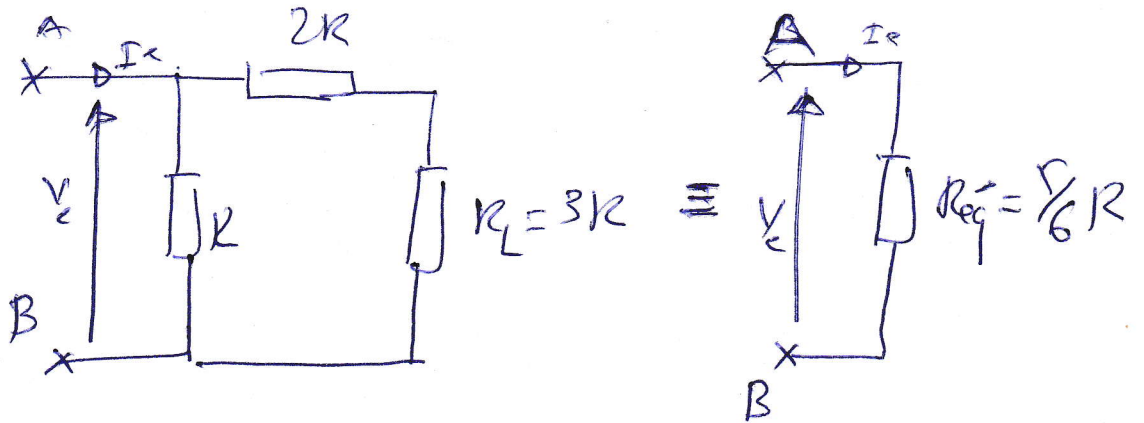 A
Ie
2R
Ve
R
R_L = 3R
B
≡
A
Ie
Ve
Req = 5/6 R
B